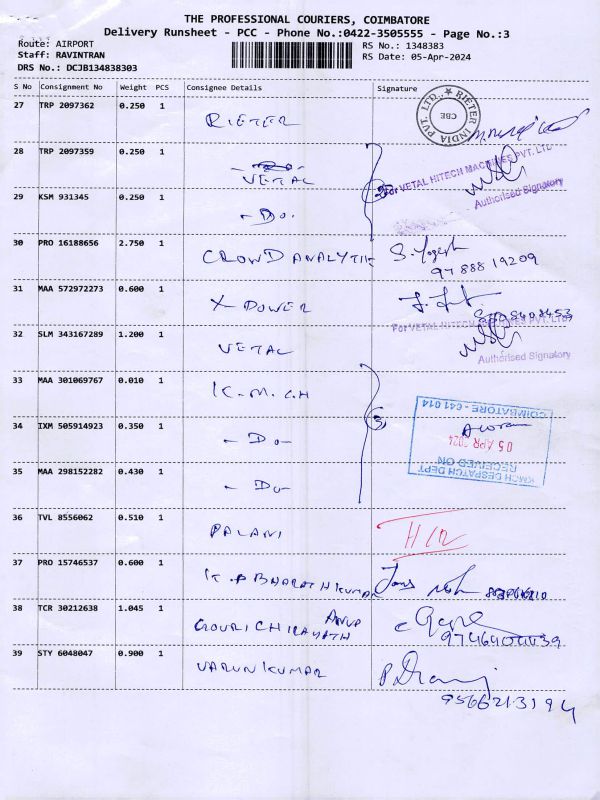 THE PROFESSIONAL COURIERS, COIMBATORE
Delivery Runsheet - PCC - Phone No.:0422-3505555 - Page No.:3
Route: AIRPORT
RS No.: 1348383
Staff: RAVINTRAN
RS Date: 05-Apr-2024
DRS No.: DCJB134838303
S No Consignment No Weight PCS Consignee Details Signature
27 TRP 2097362 0.250 1 RIETER
RIETER INDIA PVT. LTD.,
CBE
28 TRP 2097359 0.250 1 VETAL
For VETAL HITECH MACHINES PVT. LTD
Authorised Signatory
29 KSM 931345 0.250 1 - Do.
30 PRO 16188656 2.750 1 CROWD ANALYTIX S. Yogesh
97888 19209
31 MAA 572972273 0.600 1 X POWER
32 SLM 343167289 1.200 1 VETAL
For VETAL HITECH MACHINES PVT. LTD
Authorised Signatory
33 MAA 301069767 0.010 1 K.M.C.H
34 IXM 505914923 0.350 1 - Do -
35 MAA 298152282 0.430 1 - Do -
KMCH DESPATCH DEPT
RECEIVED ON
05 APR 2024
COIMBATORE - 641 014
36 TVL 8556062 0.510 1 PALANI
37 PRO 15746537 0.600 1 K.P BHARATH KUMAR
38 TCR 30212638 1.045 1 GOURI CHIRAYATH ANUP
39 STY 6048047 0.900 1 VARUN KUMAR
9566213194